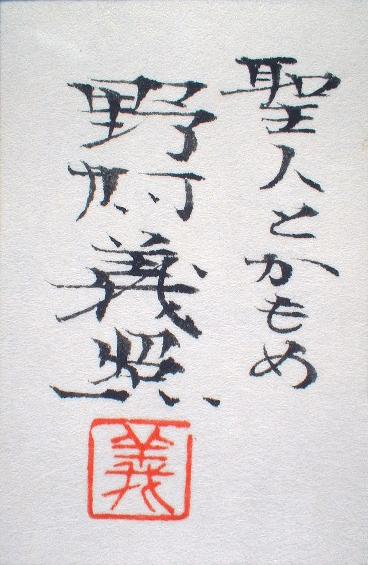 聖人とかもめ
野村義照
義